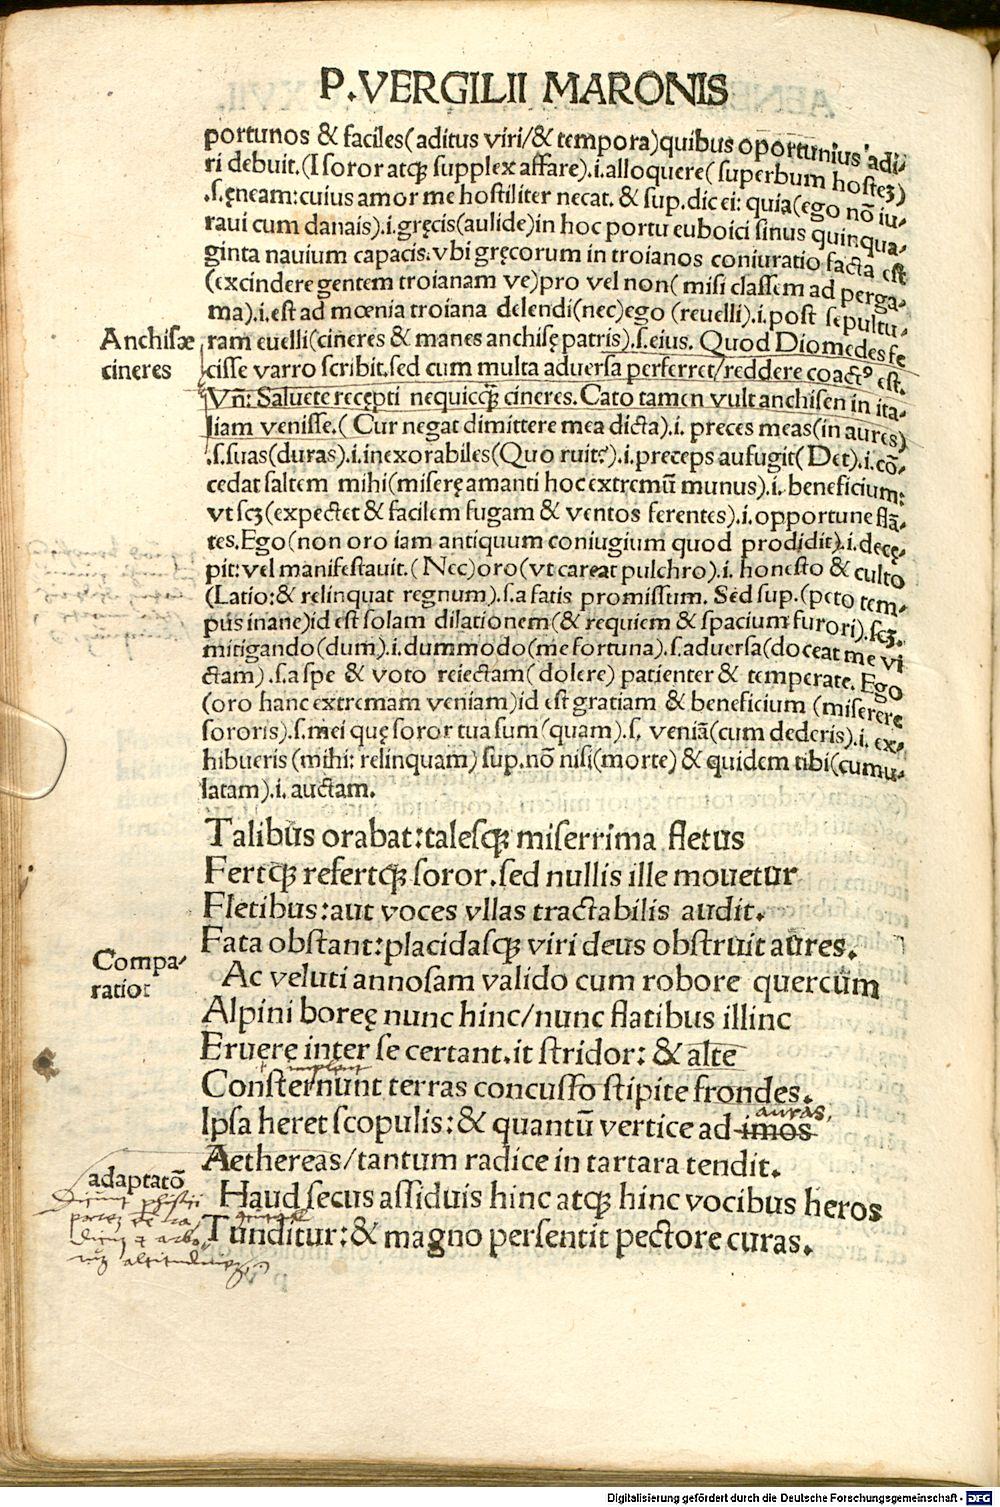 P.VERGILII MARONIS
portunos & faciles(aditus viri/& tempora)quibus oportunius adi-
ri debuit.(I soror atqꝫ supplex affare).i.alloquere(superbum hosteꝫ)
.s.ęneam:cuius amor me hostiliter necat. & sup.dic ei: quia(ego nō iu-
raui cum danais).i.gręcis(aulide)in hoc portu euboici sinus quinqua-
ginta nauium capacis:vbi gręcorum in troianos coniuratio facta est
(excindere gentem troianam ve)pro vel non( misi classem ad perga-
ma).i.est ad mœnia troiana delendi(nec)ego (reuelli).i.post sepultu-
Anchisæ
cineres
ram euelli(cineres & manes anchisę patris).s.eius. Quod Diomedes fe
cisse varro scribit.sed cum multa aduersa perferret/reddere coactꝰ est.
Vñ: Saluete recepti nequicqꝫ cineres. Cato tamen vult anchisen in ita-
liam venisse.( Cur negat dimittere mea dicta).i. preces meas(in aures)
.s.suas(duras).i.inexorabiles(Quo ruit?).i.preceps aufugit( Det).i.cō-
cedat saltem mihi(miserę amanti hoc extremū munus).i. beneficium:
vt scꝫ(expectet & facilem fugam & ventos ferentes).i.opportune flā-
tes.Ego(non oro iam antiquum coniugium quod prodidit).i.decę-
pit:vel manifestauit.( Nec)oro(vt careat pulchro).i. honesto & culto
(Latio:& relinquat regnum).s.a fatis promissum. Sed sup.(peto tem-
pus inane)id est solam dilationem(& requiem & spacium furori).scꝫ.
mitigando(dum).i.dummodo(me fortuna).s.aduersa(doceat me vi
ctam).s.a spe & voto reiectam(dolere) patienter & temperate. Ego
(oro hanc extremam veniam)id est gratiam & beneficium (miserere
sororis).s.mei quę soror tua sum (quam).s. veniā(cum dederis).i. ex-
hibueris (mihi: relinquam) sup.nō nisi(morte) & quidem tibi(cumu-
latam).i. auctam.
Talibus orabat:talesqꝫ miserrima fletus
Fertqꝫ refertqꝫ soror.sed nullis ille mouetur
Fletibus:aut voces vllas tractabilis audit.
Fata obstant:placidasqꝫ viri deus obstruit aures.
Compa-
ratio:
Ac veluti annosam valido cum robore quercum
Alpini boreę nunc hinc/nunc flatibus illinc
Eruere inter se certant.it stridor: & alte
Consternunt terras concusso stipite frondes.
auras,
Ipsa heret scopulis:& quantū vertice ad imos
Aethereas/tantum radice in tartara tendit.
adaptatō
Haud secus assiduis hinc atqꝫ hinc vocibus heros
Tunditur:& magno persentit pectore curas.
Digitalisierung gefördert durch die Deutsche Forschungsgemeinschaft - DFG